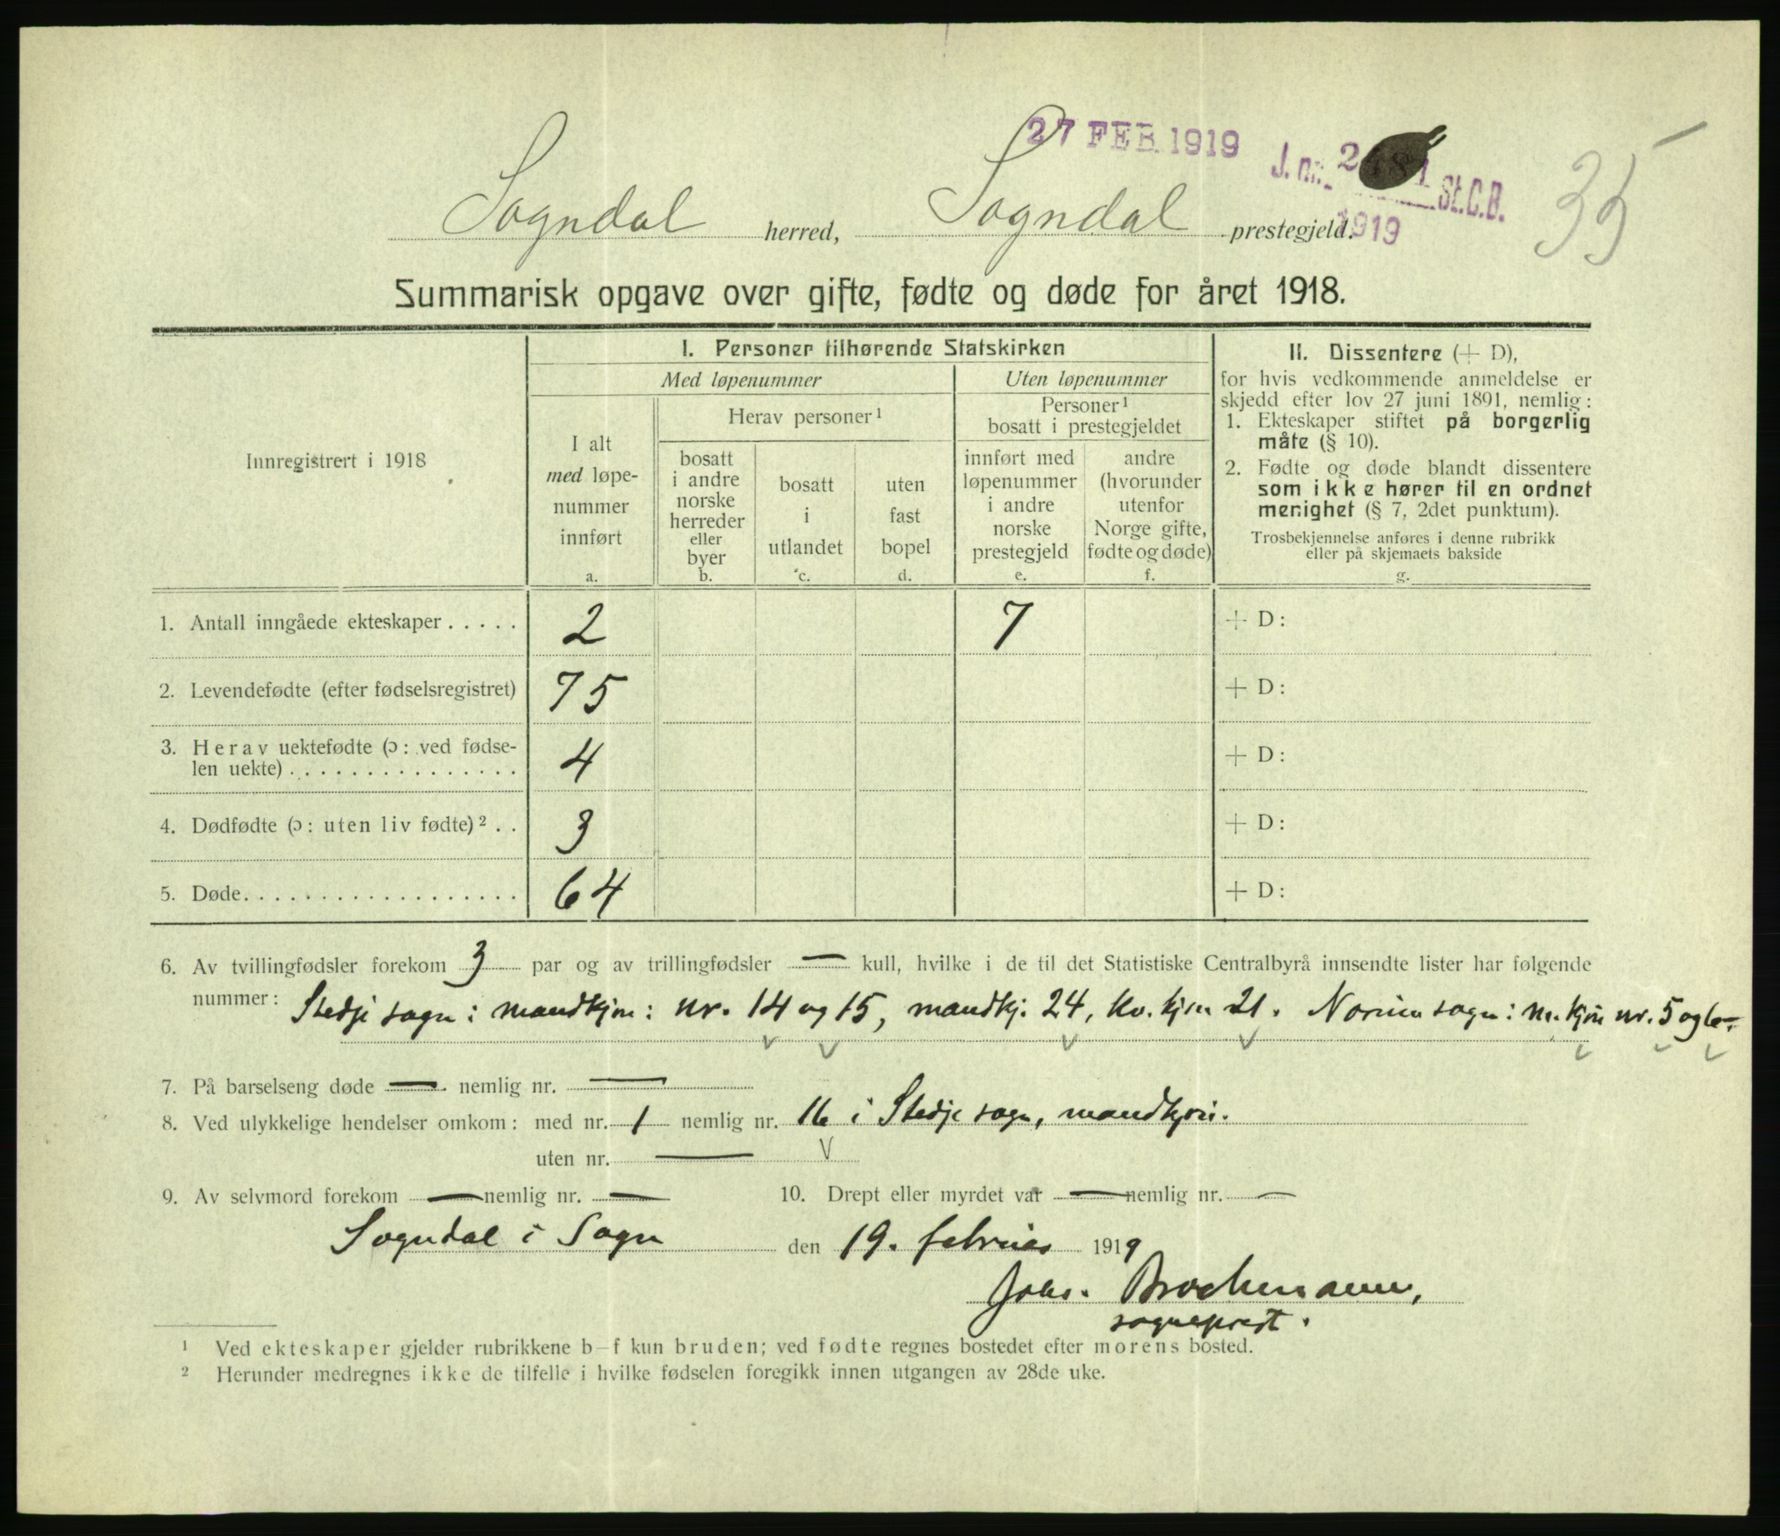 27 FEB 1919
J. nr. St.C.B.
1919
35
Sogndal herred, Sogndal prestegjeld.
Summarisk opgave over gifte, fødte og døde for året 1918.
Innregistrert i 1918
I. Personer tilhørende Statskirken
Med løpenummer
Uten løpenummer
I alt
med løpe-
nummer
innført
a.
Herav personer¹
bosatt
i andre
norske
herreder
eller
byer
b.
bosatt
i
utlandet
c.
uten
fast
bopel
d.
Personer¹
bosatt i prestegjeldet
innført med
løpenummer
i andre
norske
prestegjeld
e.
andre
(hvorunder
utenfor
Norge gifte,
fødte og døde)
f.
II. Dissentere (+ D),
for hvis vedkommende anmeldelse er
skjedd efter lov 27 juni 1891, nemlig:
1. Ekteskaper stiftet på borgerlig
måte (§ 10).
2. Fødte og døde blandt dissentere
som ikke hører til en ordnet
menighet (§ 7, 2det punktum).
Trosbekjennelse anføres i denne rubrikk
eller på skjemaets bakside
g.
1. Antall inngåede ekteskaper . . . . . 2 7 + D:
2. Levendefødte (efter fødselsregistret) 75 + D:
3. Herav uektefødte (ɔ: ved fødse-
len uekte) . . . . . . . . . . . . . . . 4 + D:
4. Dødfødte (ɔ: uten liv fødte)² . . 3 + D:
5. Døde. . . . . . . . . . . . . . . . . . 64 + D:
6. Av tvillingfødsler forekom 3 par og av trillingfødsler — kull, hvilke i de til det Statistiske Centralbyrå innsendte lister har følgende
nummer: Stedje sogn: mandkjøn: nr. 14 og 15, mandkj. 24, kv. kjøn 21. Norum sogn: m. kjøn nr. 5 og 6.
7. På barselseng døde — nemlig nr. —
8. Ved ulykkelige hendelser omkom: med nr. 1 nemlig nr. 16 i Stedje sogn, mandkjøn.
uten nr. —
9. Av selvmord forekom — nemlig nr. — 10. Drept eller myrdet var — nemlig nr. —
Sogndal i Sogn den 19. februar 1919
Johs. Brochmann,
sogneprest.
¹ Ved ekteskaper gjelder rubrikkene b–f kun bruden; ved fødte regnes bostedet efter morens bosted.
² Herunder medregnes ikke de tilfelle i hvilke fødselen foregikk innen utgangen av 28de uke.